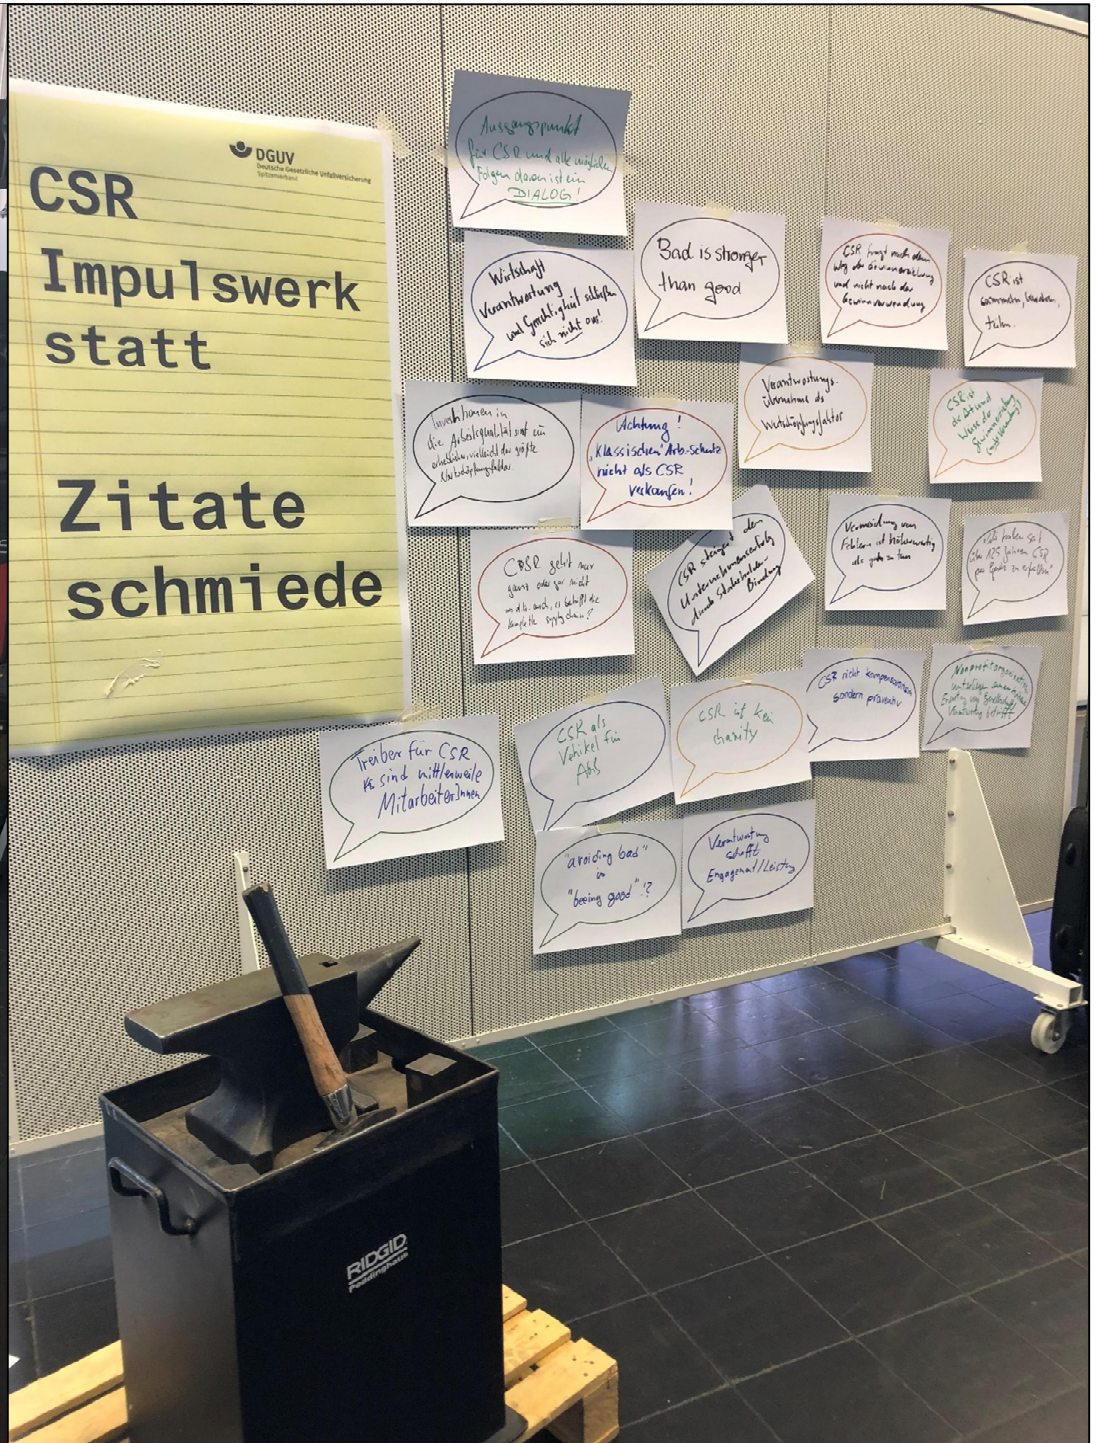 DGUV
Deutsche Gesetzliche Unfallversicherung
Spitzenverband
CSR
Impulswerk
statt
Zitate
schmiede
Ausgangspunkt
für CSR und alle möglichen
Folgen davon ist ein
DIALOG!
Wirtschaft
Verantwortung
und Gerechtigkeit schließen
sich nicht aus!
Bad is stronger
than good
CSR fragt nach dem
Weg der Gewinnerzielung
und nicht nach der
Gewinnverwendung
CSR ist
Investitionen in
die Arbeitsqualität sind ein
vielleicht der größte
Wertschöpfungsfaktor
Achtung!
"Klassischen" Arb.-Schutz
nicht als CSR
verkaufen!
Verantwortungs-
übernahme als
Wertschöpfungsfaktor
CSR ist
die Art und
Weise der
Gewinnerzielung
geht nur
ganz oder gar nicht
auch, es betrifft die
komplette supply chain?
CSR steigert den
Unternehmenserfolg
durch Stakeholder-
Bindung
Vermeidung von
Fehlern ist
als gutes zu tun
seit
über 125 Jahren CSR
per Gesetz zu erfüllen"
Treiber für CSR
sind mittlerweile
MitarbeiterInnen
CSR als
Vehikel für
CSR ist kein
charity
CSR nicht kompensieren
sondern präventiv
Nonprofitorganisationen
"avoiding bad"
"beeing good"!?
Verantwortung
schafft
Engagement/Leistung
RIDGID
Peddinghaus